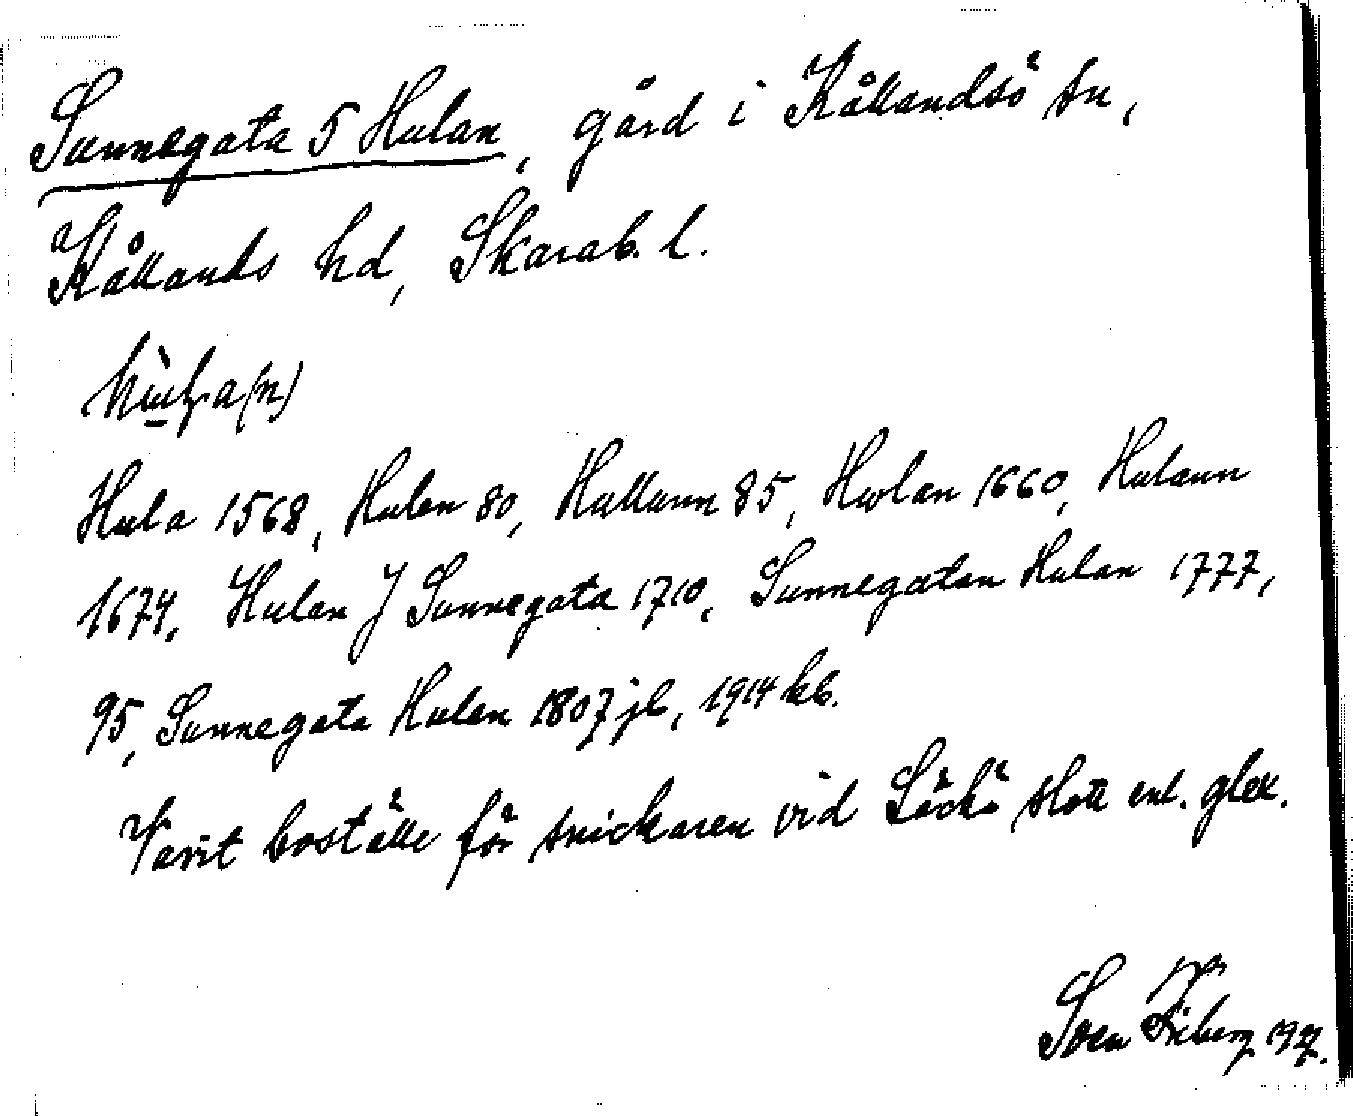 Sunnegata 5 Hulan, gård i Kållandsö sn,
Kållands hd, Skarab. l.
Hula 1568, Hulan 80, Hullann 85, Hwlan 1660, Hulann
1674, Hulan J Sunnegata 1710, Sunnegatan Hulan 1777,
95, Sunnegata Hulan 1807 jb, 1914 kb.
Varit boställe för snickaren vid Läckö slott enl. glek.
Sven